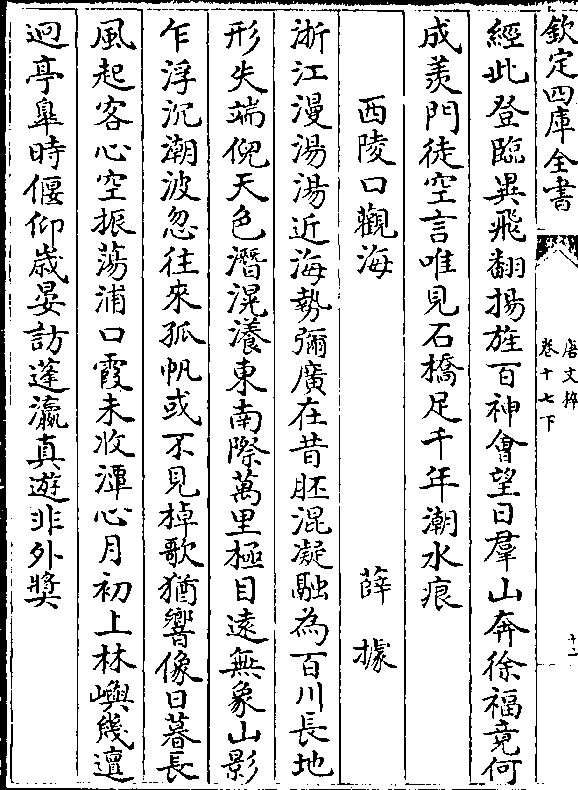 欽定四庫全書
唐文粹
卷十七下
十二
經此登臨異飛翻揚旌百神會望日羣山奔徐福竟何
成羨門徒空言唯見石橋足千年潮水痕
西陵口觀海 薛據
浙江漫湯湯近海勢彌廣在昔胚混凝融為百川長地
形失端倪天色潛滉瀁東南際萬里極目遠無象山影
乍浮沉潮波忽往來孤帆或不見棹歌猶響像日暮長
風起客心空振蕩浦口霞未收潭心月初上林嶼幾邅
迴亭臯時偃仰歲晏訪蓬瀛真遊非外奬